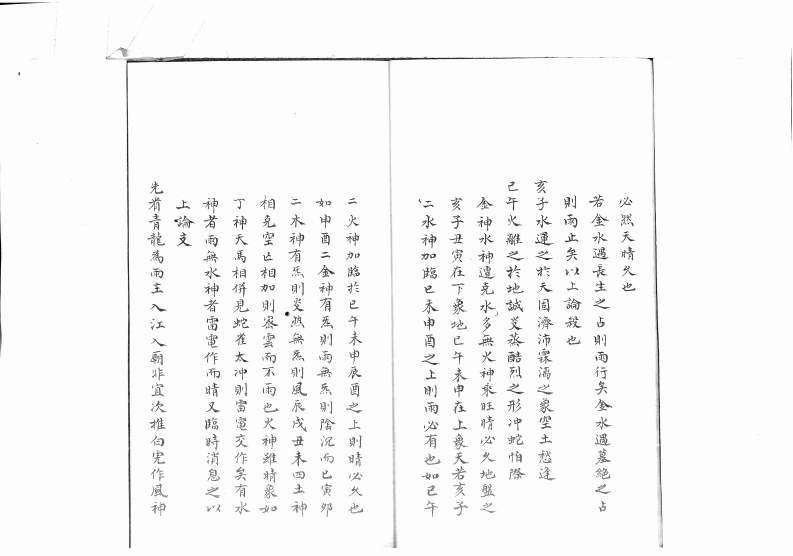 必然天晴久也
若金水遇長生之占則雨行矣金水遇墓絕之占
則雨止矣以上論殺也
亥子水運之於天固濟沛霖濡之象空土愁逢
巳午火離之於地誠炎蒸酷烈之形冲蛇怕際
金神水神遭克水多無火神乘旺晴必久地盤之
亥子丑寅在下象地巳午未申在上象天若亥子
二水神加臨巳未申酉之上則雨必有也如巳午
二火神加臨於巳午未申辰酉之上則晴必久也
如申酉二金神有炁則雨無炁則陰沉而已寅卯
二木神有炁則炎熱無炁則風辰戌丑未四土神
相克空亡相加則密雲而不雨也火神雖晴象如
丁神天馬相併見蛇雀太冲則雷電交作矣有水
神者雨無水神者雷電作而晴又臨時消息之以
上論支
先看青龍為雨主入江入廟非宜次推白虎作風神